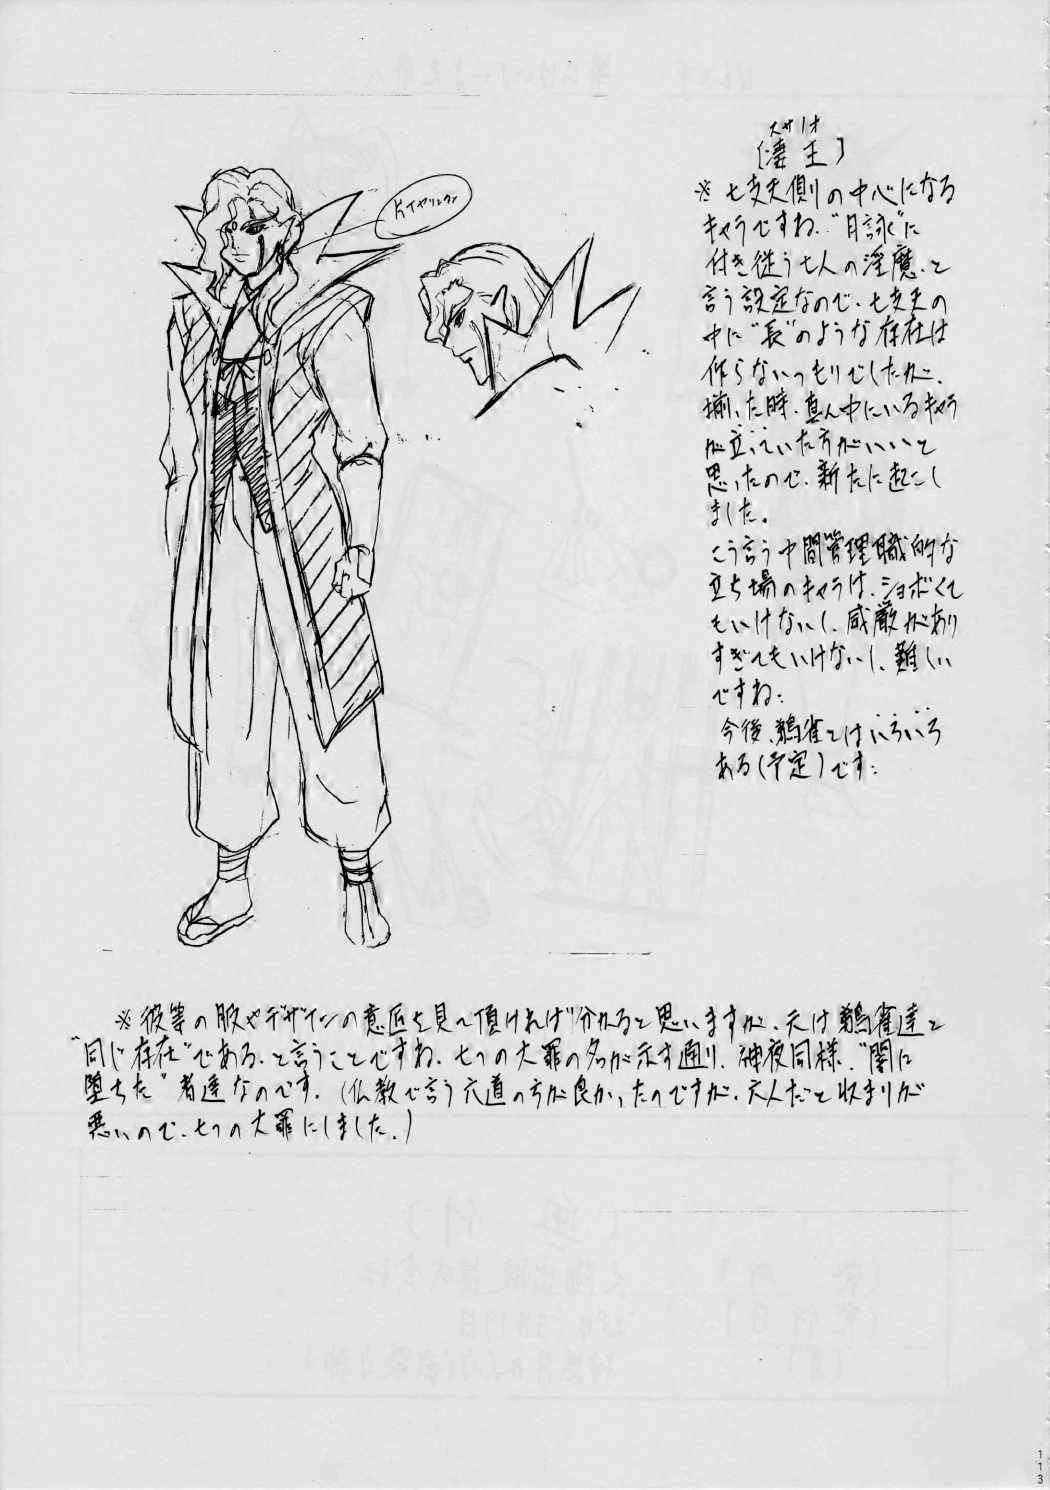 スサノオ
〔凄王〕
※七支天側の中心になる
キャラですね。“月詠”に
付き従う七人の淫魔、と
言う設定なので、七支天の
中に“長”のような存在は
作らないつもりでしたが、
揃った時、真ん中にいるキャラ
が立っていた方がいいと
思ったので、新たに起こし
ました。
こう言う中間管理職的な
立ち場のキャラは、ショボくて
もいけないし、威厳があり
すぎてもいけないし、難しい
ですね。
今後、鵺雀とはいろいろ
ある(予定)です。
片イヤリング
※彼等の服やデザインの意匠を見て頂ければ分かると思いますが、天は鵺雀達と
“同じ存在”である、と言うことですね。七つの大罪の名が示す通り、神夜同様、“闇に
堕ちた”者達なのです。(仏教で言う六道の方が良かったのですが、六人だと収まりが
悪いので、七つの大罪にしました。)
113